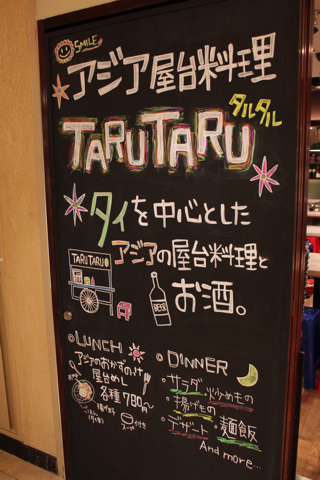 SMILE
アジア屋台料理
TARUTARU
タルタル
タイを中心とした
アジアの屋台料理と
お酒。
TARUTARU
BEER
LUNCH
アジアのおかずのっけ
屋台めし
各種780円〜
揚げ餅子
スープ
付き
DINNER
・サラダ ・炒めもの
・揚げもの
・デザート ・麺飯
And more...